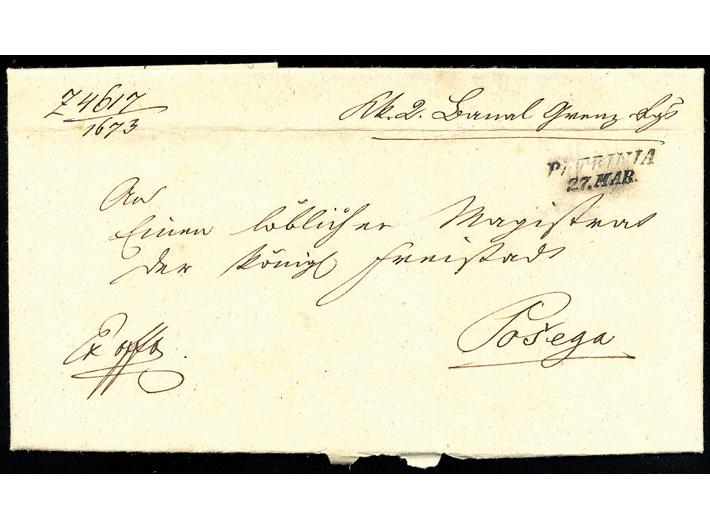 Z 4617
1673
Kk. 2. Banal Grenz Rgt
PETRINIA
27. MAR.
An
Einen löblichen Magistrat
der königl Freistadt
Ex offo
Pošega